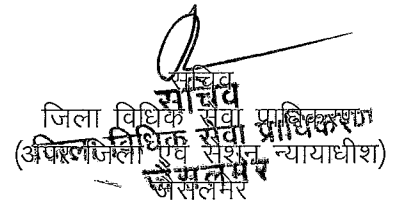 सचिव
सचिव
जिला विधिक सेवा प्राधिकरण
जिला विधिक सेवा प्राधिकरण
(अपर जिला एवं सेशन न्यायाधीश)
जैसलमेर
जैसलमेर